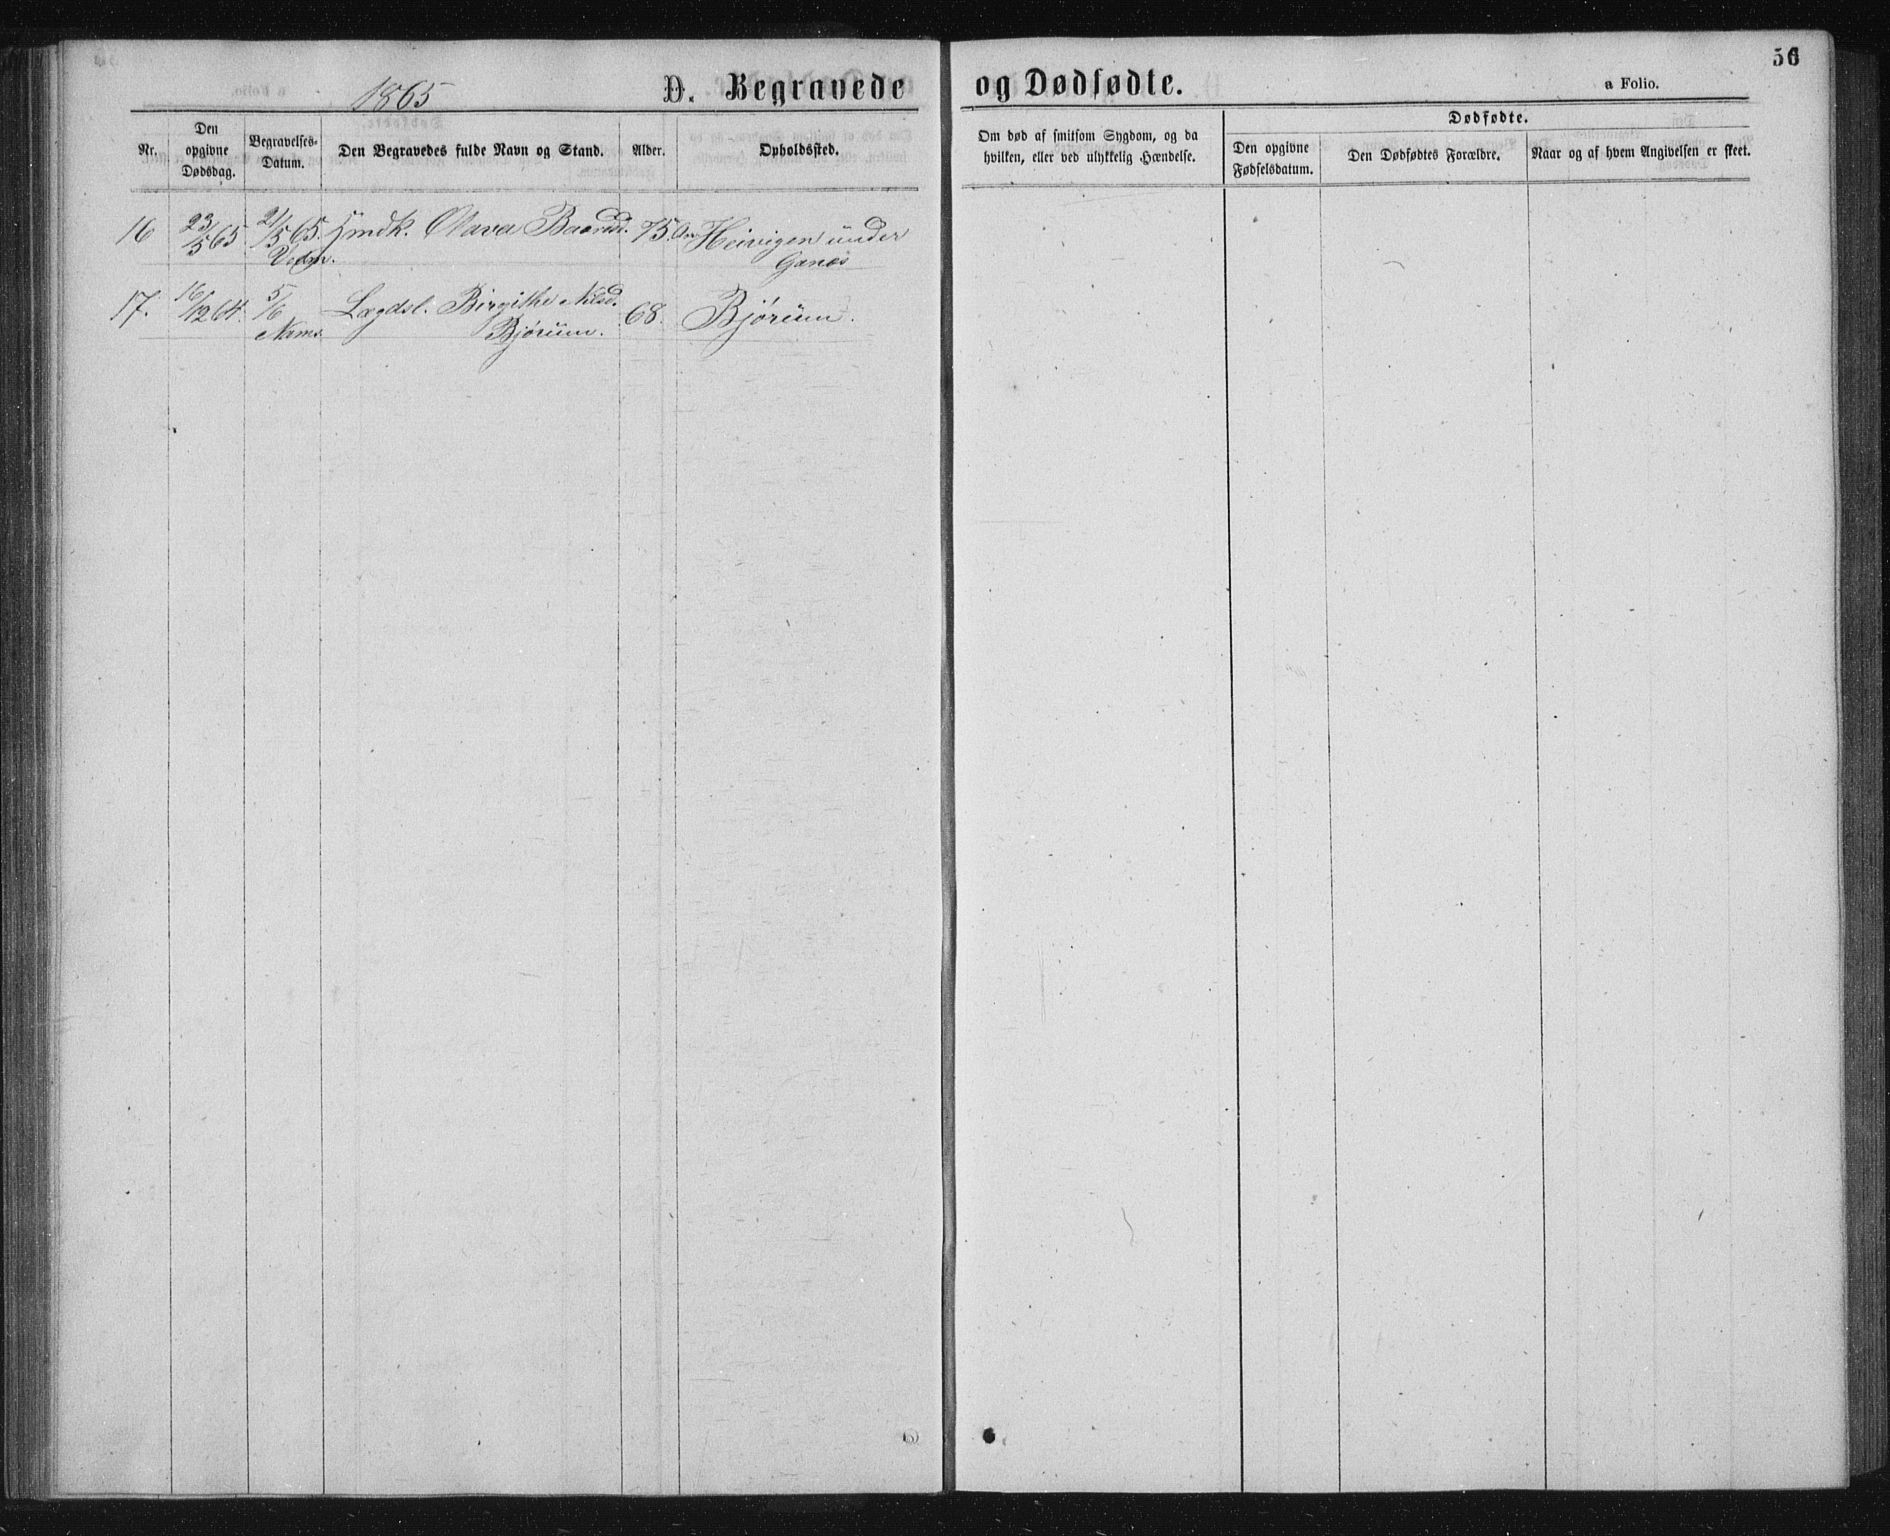 1865
D. Begravede og Dødfødte.
a Folio.
56
Nr.
Den opgivne Dødsdag.
Begravelses-Datum.
Den Begravedes fulde Navn og Stand.
Alder.
Opholdssted.
Om død af smitsom Sygdom, og da hvilken, eller ved ulykkelig Hændelse.
Dødfødte.
Den opgivne Fødselsdatum.
Den Dødfødtes Forældre.
Naar og af hvem Angivelsen er skeet.
16 23/5 65 21/5 65. Olava Baardsd. 75. Heivigen under
Ganæs
17. 16/12 64. 5/6 Lægdsl. Birgithe Nilsd. 68. Bjørum.
Nams. Bjørum.